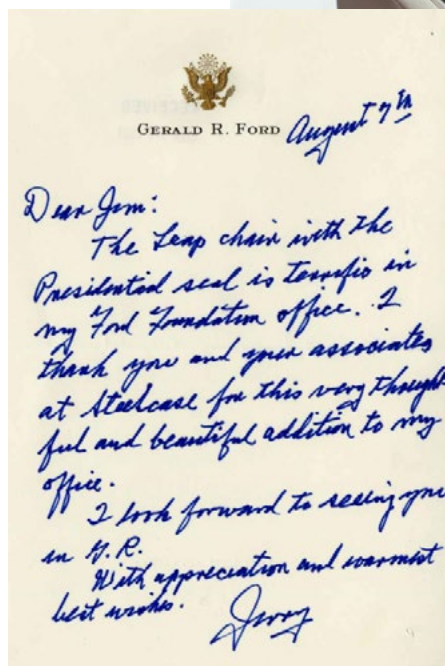 GERALD R. FORD
August 7th
Dear Jim:
The Leap chair with the
Presidential seal is terrific in
my Ford Foundation office. I
thank you and your associates
at Steelcase for this very thought
ful and beautiful addition to my
office.
I look forward to seeing you
in G.R.
With appreciation and warmest
best wishes.
Jerry